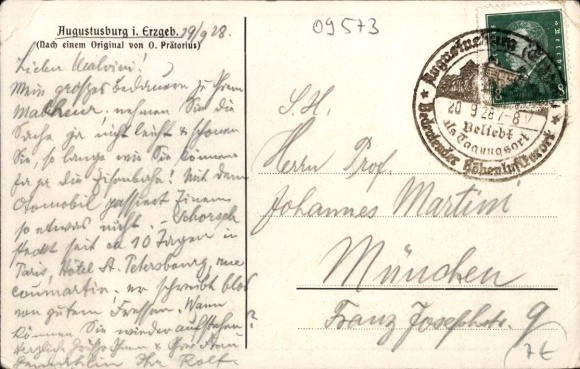 Augustusburg i. Erzgeb. 19/9 28.
(Nach einem Original von O. Prätorius)
Lieber Malvini!
Mein großes Bedauern zu Ihrem
Malheur. nehmen Sie die
Sache ja nicht leicht & schonen
Sie, so lange wie Sie können
Ja ja die Eisenbahn! Mit dem
Otomobil passiert Einem
so etwas nicht. - Schorsch
steckt seit ca 10 Tagen in
Paris, Hôtel St. Petersbourg, rue
Caumartin. er schreibt blos
von gutem Fressen. Wann
können Sie wieder aufstehen?
Herzlich Grüße Ihnen & Ihrer Frau
Gemahlin Ihr Rolf
09573
Augustusburg
20 9 28 7-8 V
Beliebt
als Tagungsort
Bedeutender Höhenluftkurort
8
S. H.
Herrn Prof.
Johannes Martini
München
Franz Josephstr. 9
7E